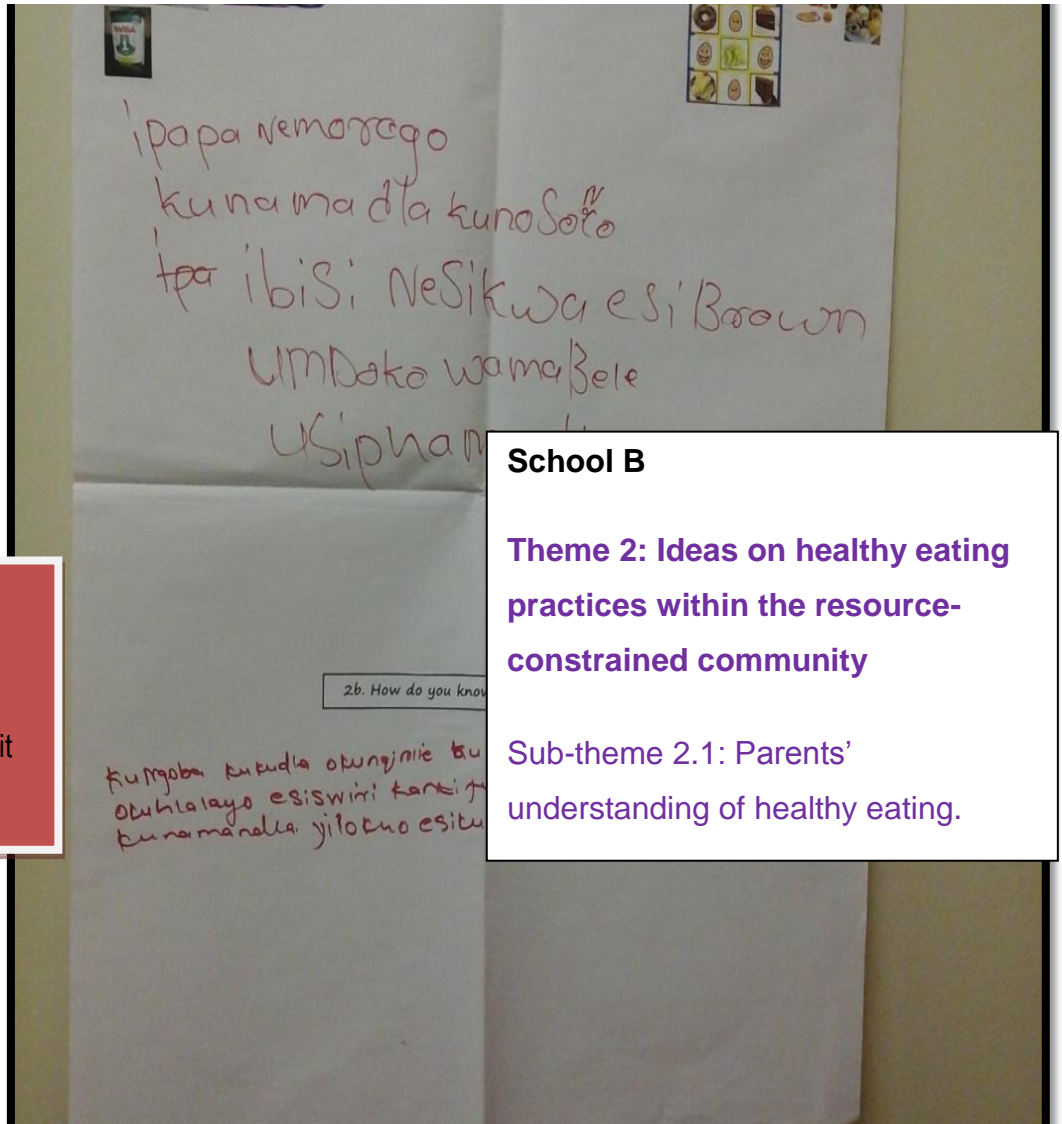 WISA
ipapa nemorogo
kunamadla kunosoño
ipa ibisi NeSikwa esi Brown
UMDoko wamaBele
USipha
School B
Theme 2: Ideas on healthy eating
practices within the resource-
constrained community
Sub-theme 2.1: Parents'
understanding of healthy eating.
it
2b. How do you know
Kungoba kukudla okungimie
okuhlalayo esiswini
kunamandla yilokho